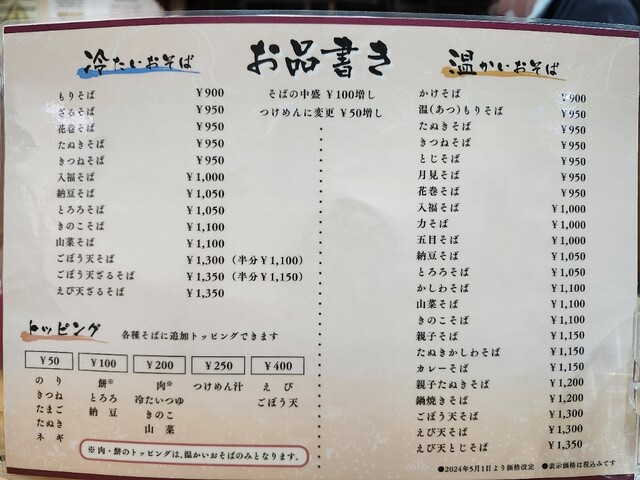 お品書き
そばの中盛 ￥100増し
つけめんに変更 ￥50増し
冷たいおそば
もりそば ￥900
ざるそば ￥950
花巻そば ￥950
たぬきそば ￥950
きつねそば ￥950
入福そば ￥1,000
納豆そば ￥1,050
とろろそば ￥1,050
きのこそば ￥1,100
山菜そば ￥1,100
ごぼう天そば ￥1,300（半分￥1,100）
ごぼう天ざるそば ￥1,350（半分￥1,150）
えび天ざるそば ￥1,350
トッピング 各種そばに追加トッピングできます
￥50 ￥100 ￥200 ￥250 ￥400
のり 餅※ 肉※ つけめん汁 えび
きつね とろろ 冷たいつゆ ごぼう天
たまご 納豆 きのこ
たぬき 山菜
ネギ
※肉・餅のトッピングは、温かいおそばのみとなります。
温かいおそば
かけそば ￥900
温(あつ)もりそば ￥950
たぬきそば ￥950
きつねそば ￥950
とじそば ￥950
月見そば ￥950
花巻そば ￥950
入福そば ￥1,000
力そば ￥1,000
五目そば ￥1,000
納豆そば ￥1,050
とろろそば ￥1,050
かしわそば ￥1,100
山菜そば ￥1,100
きのこそば ￥1,100
親子そば ￥1,150
たぬきかしわそば ￥1,150
カレーそば ￥1,150
親子たぬきそば ￥1,200
鍋焼きそば ￥1,200
ごぼう天そば ￥1,300
えび天そば ￥1,300
えび天とじそば ￥1,350
●2024年5月1日より価格改定 ●表示価格は税込みです